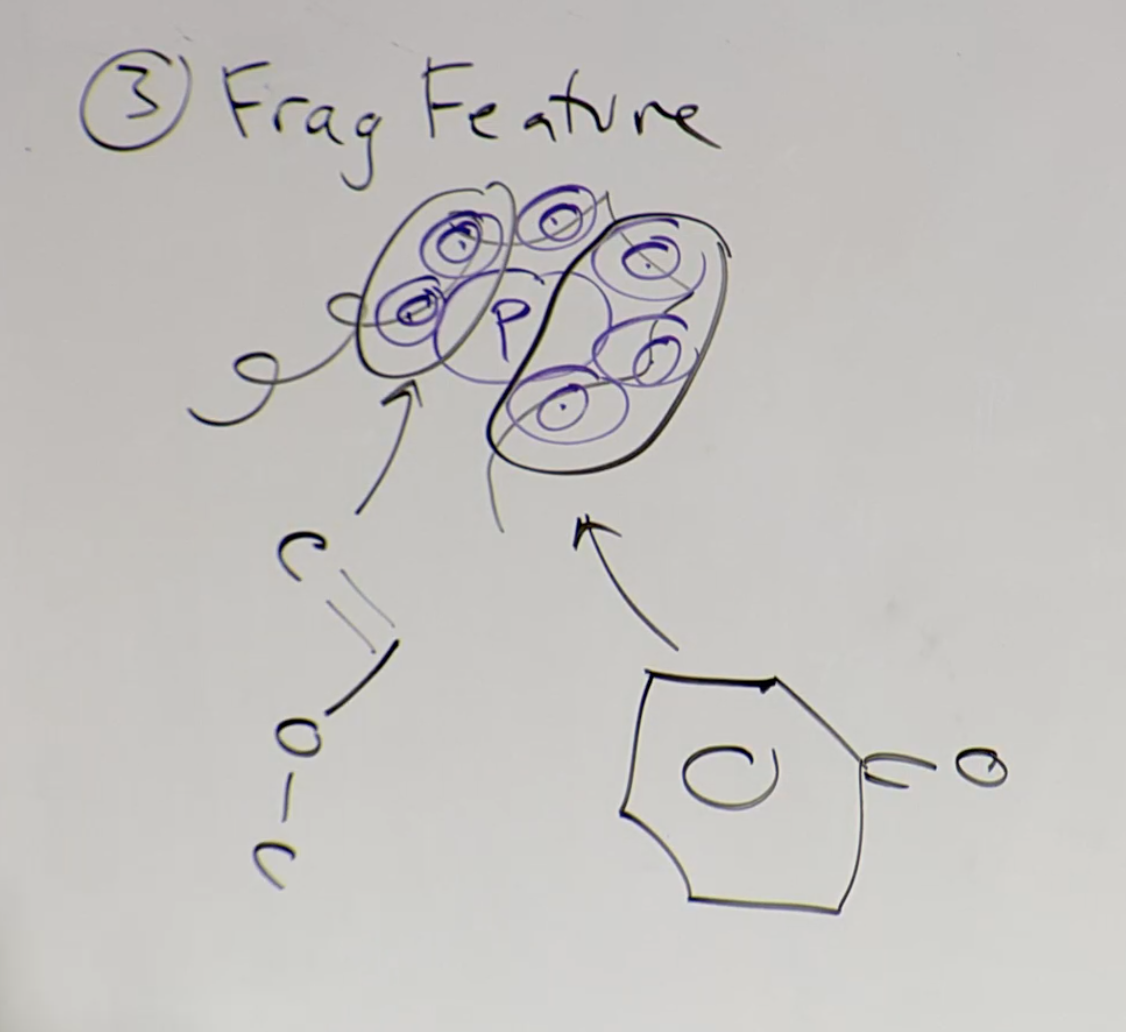 ③ Frag Feature
P
C
O
C
O